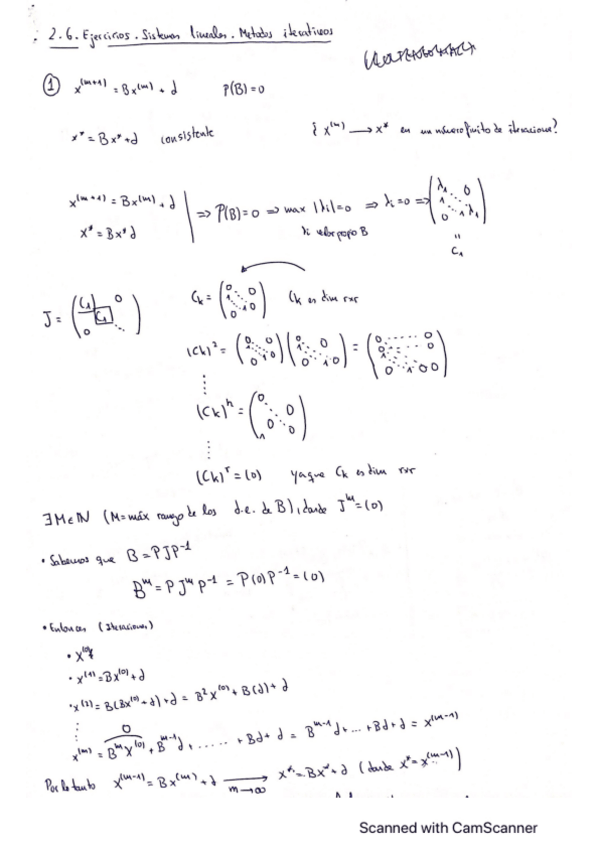 2.6. Ejercicios. Sistemas lineales. Metodos iterativos
① x^(m+1) = Bx^(m) + d    ρ(B)=0
x* = Bx* + d consistente    ¿ x^(m) → x* en un número finito de iteraciones?
x^(m+1) = Bx^(m) + d
x* = Bx* d
=> ρ(B)=0 => max |λi|=0 => λi=0 => (λ1 0 1 0 1 λ1)
λi valor propio B
" C1
J = (C1 0 C1 0)    Ck = (0 0 1 1 0)    Ck es dim rxr
(Ck)² = (0 0 1 0 1 0) (0 0 1 0 1 0) = (0 0 0 0 1 0 0)
(Ck)^h = (0 0 0 1 0)
(Ck)^r = (0)    ya que Ck es dim rxr
∃M∈ℕ (M = máx rango de los d.e. de B), donde J^M = (0)
• Sabemos que B = PJP⁻¹
B^M = P J^M P⁻¹ = P(0)P⁻¹ = (0)
• Entonces (Iteraciones)
• x^(0)
• x^(1) = Bx^(0) + d
• x^(2) = B(Bx^(0) + d) + d = B²x^(0) + B(d) + d
0
x^(m) = B^M x^(0) + B^(M-1) d + ..... + Bd + d = B^(M-1) d + ... + Bd + d = x^(M-1)
Por lo tanto x^(m-1) = Bx^(m) + d → m→∞ x* = Bx* + d (donde x* = x^(M-1))
Scanned with CamScanner